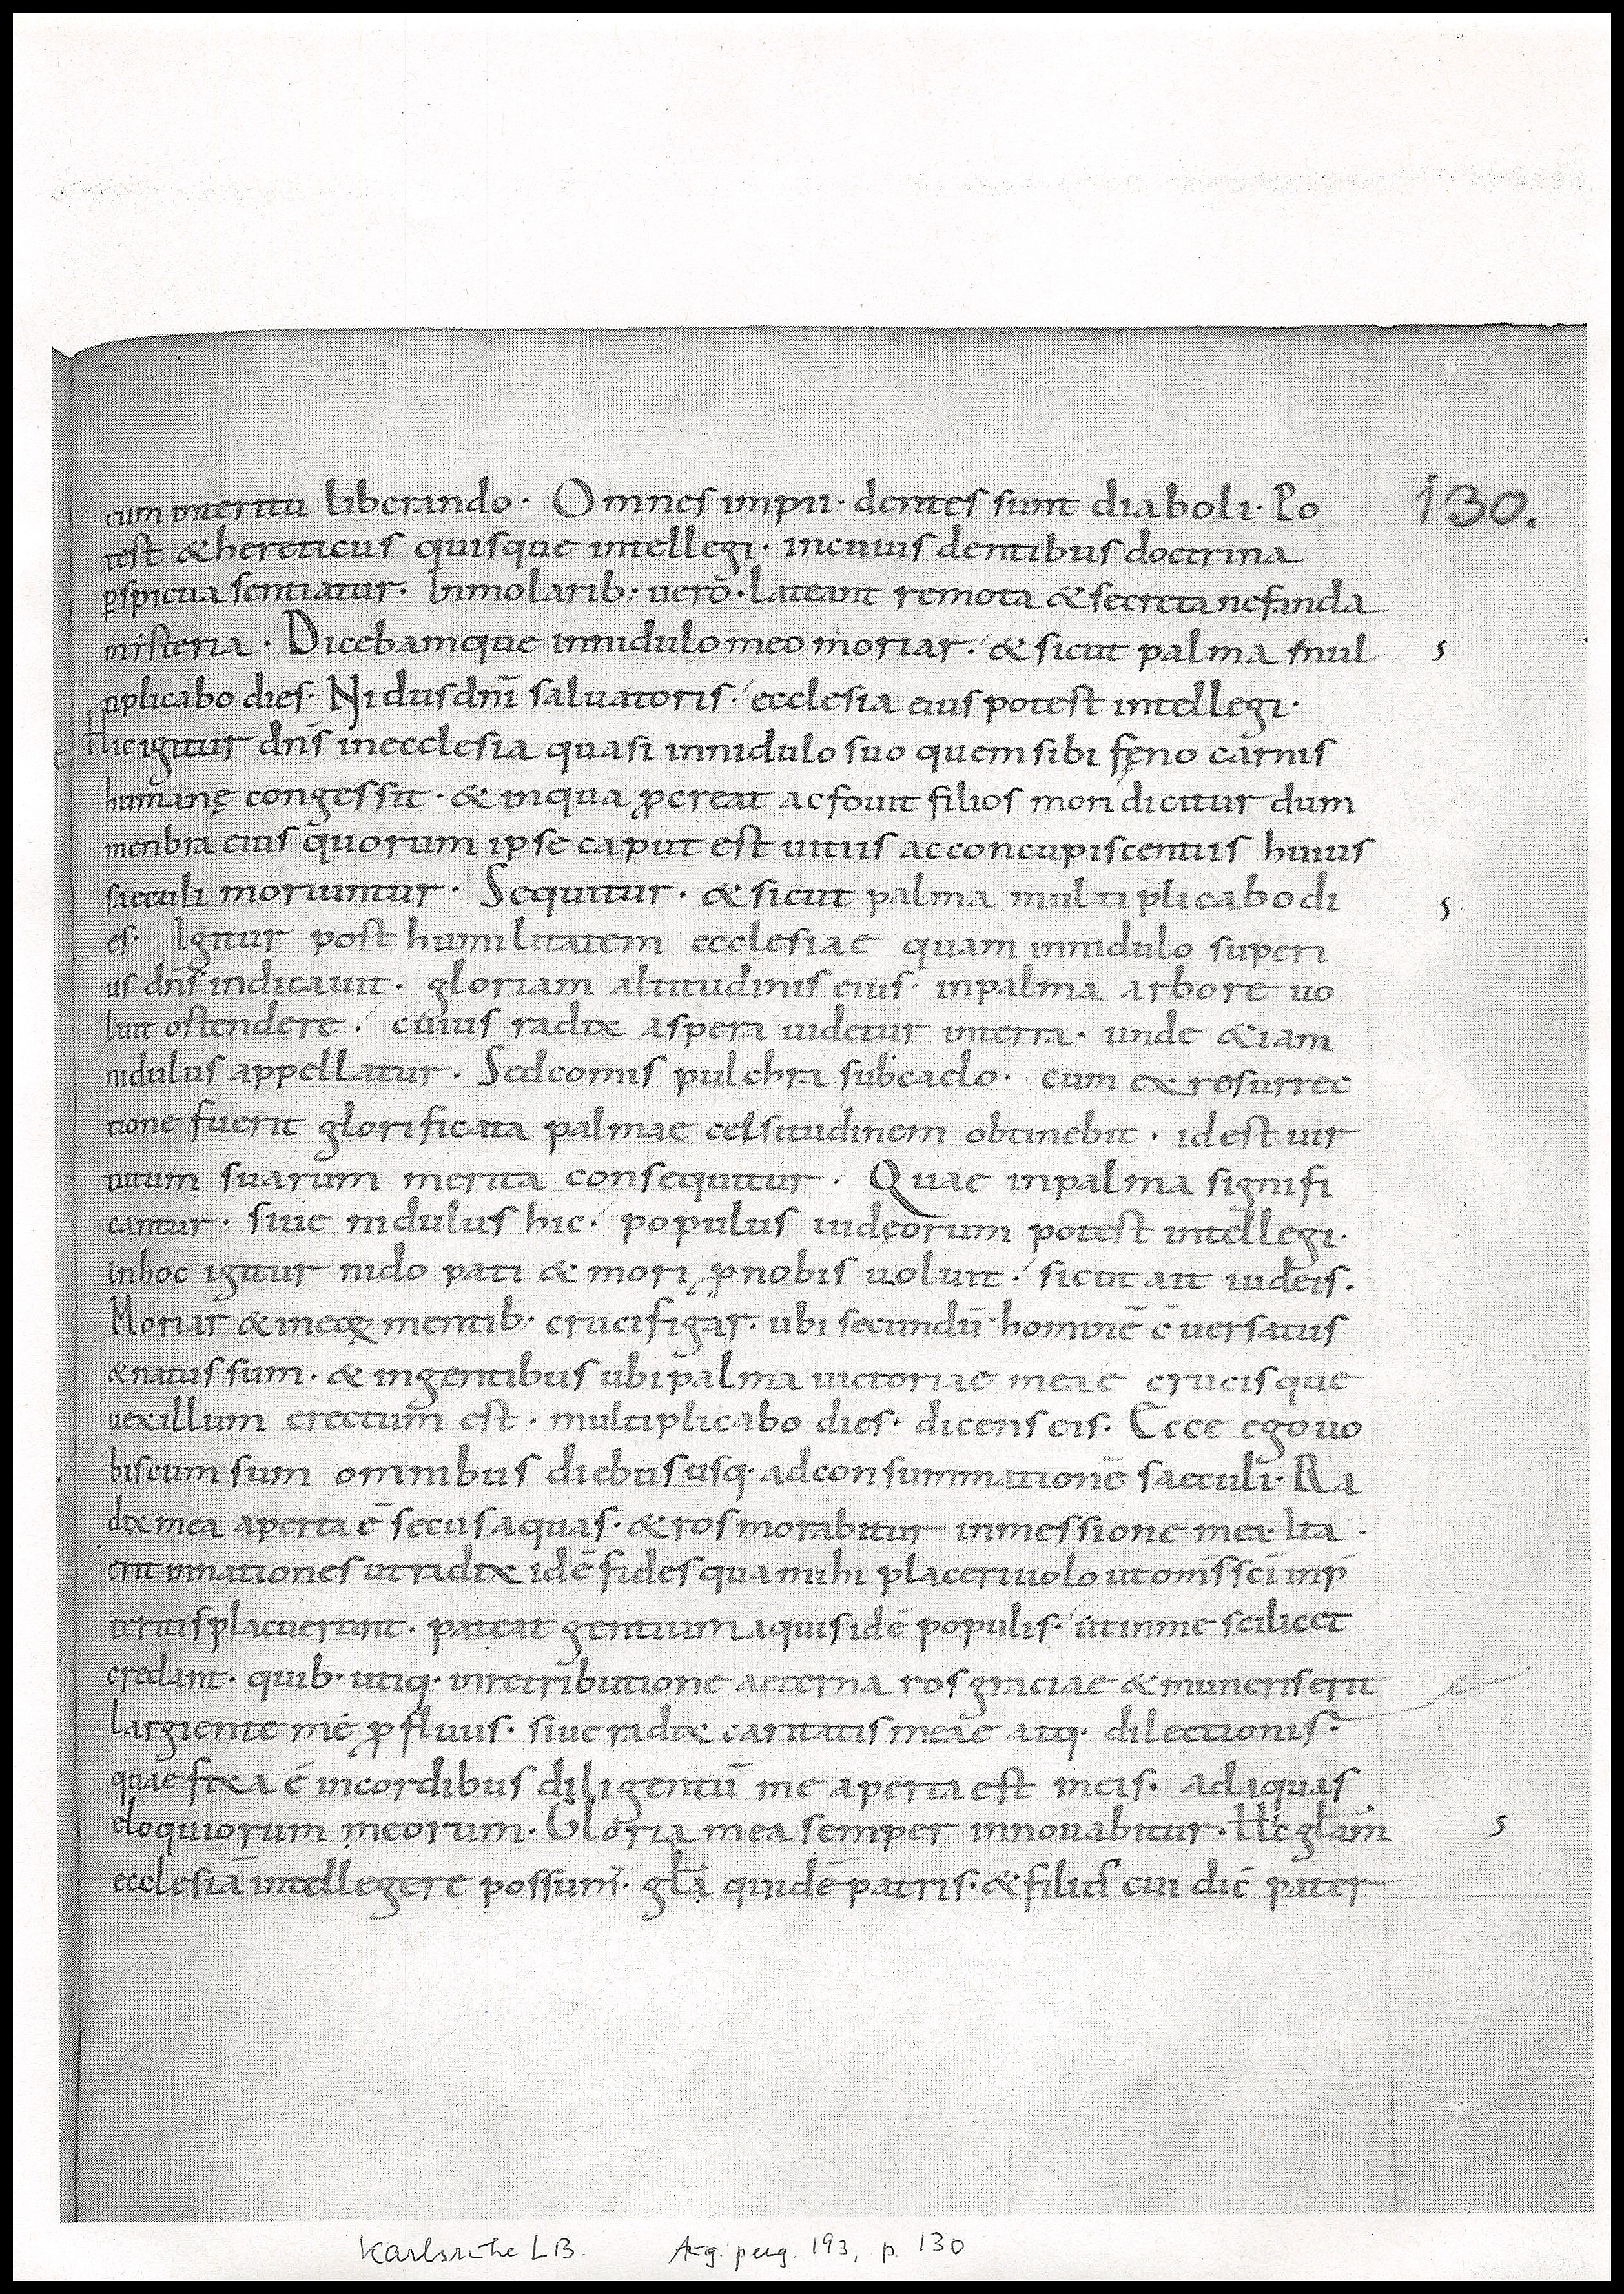 cum interitu liberando · Omnes impii · dentes sunt diaboli · Po 130.
test & hereticus quisque intellegi · in cuius dentibus doctrina
p̲spicua sentiatur · In molarib: uero · lateant remota & secreta nefanda
misteria · Dicebamque in nidulo meo moriar · & sicut palma mul s
tiplicabo dies · Nidus dn̄i saluatoris · ecclesia eius potest intellegi ·
Hic igitur dn̄s in ecclesia quasi in nidulo suo quem sibi fęno carnis
humanę congessit · & in qua p̲creat ac fouit filios mori dicitur dum
menbra eius quorum ipse caput est uitiis ac concupiscentiis huius
saeculi moriuntur · Sequitur · & sicut palma multiplicabo di s
es · Igitur post humilitatem ecclesiae quam in nidulo superi
us dn̄s indicauit · gloriam altitudinis eius · in palma arbore uo
luit ostendere · cuius radix aspera uidetur in terra · unde &iam
nidulus appellatur · Sed comis pulchra sub caelo · cum ex resurrec
tione fuerit glorificata palmae celsitudinem obtinebit · id est uir
tutum suarum merita consequitur · Quae in palma signifi
cantur · siue nidulus hic · populus iudęorum potest intellegi ·
In hoc igitur nido pati & mori p̲ nobis uoluit · sicut ait iudeis ·
Moriar & in eoꝝ mentib· crucifigar · ubi secundū hominē c̄uersatus
& natus sum · & in gentibus ubi palma uictoriae meae crucisque
uexillum erectum est · multiplicabo dies · dicens eis · Ecce ego uo
biscum sum omnibus diebus usq· ad consummationē saeculi · Ra
dix mea aperta ē secus aquas · & ros morabitur in messione mea · Ita
erit in nationes ut radix id ē fides qua mihi placeri uolo ut om̄s sc̄i in p̄
teritis placuerunt · pateat gentium aquis id ē populis · ut in me scilicet
credant · quib· utiq· in retributione aeterna ros graciae & muneris erit
largiente me p̲fluus · siue radix caritatis meae atq· dilectionis ·
quae fixa ē in cordibus diligentū me aperta est meis · ad aquas
eloquiorum meorum · Gloria mea semper innouabitur · Hic gl̄am s
ecclesiā intellegere possum̄ · gl̄a quidē patris · & filius cui dic̄ pater
Karlsruhe LB. Aug. perg. 193, p. 130